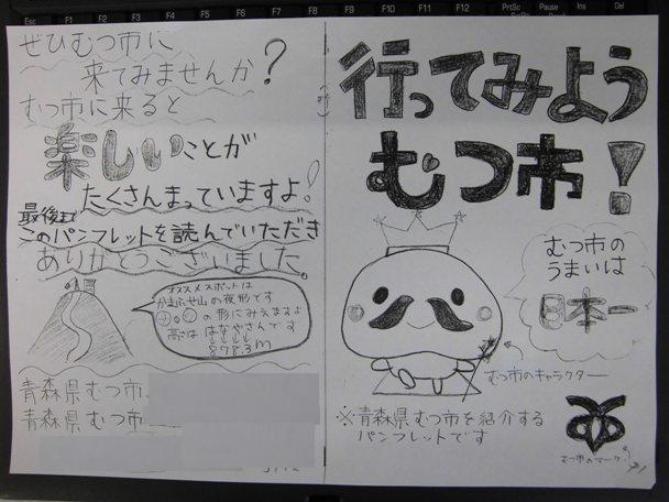 行ってみよう
むつ市!
むつ市の
うまいは
日本一
むつ市のキャラクター
※青森県むつ市を紹介する
パンフレットです
むつ市のマーク
ぜひむつ市に
来てみませんか?
むつ市に来ると
楽しいことが
たくさんまっていますよ!
最後まで
このパンフレットを読んでいただき
ありがとうございました。
オススメスポットは
かまふせ山の夜形です
の形にみえますよ
高さは はなやさんです
878.3m
青森県むつ市
青森県むつ市
Esc F1 F2 F3 F4 F5 F6 F7 F8 F9 F10 F11 F12 PrtSc Pause Ins Del
SysRq Break